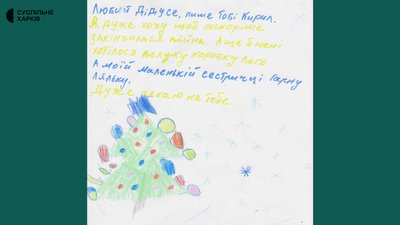 СУСПІЛЬНЕ
ХАРКІВ
Любий Дідусе, пише Тобі Кирил.
Я дуже хочу щоб поскоріше
закінчилася війна. А ще б мені
хотілося велуку коробку Лего
А моїй маленькій сестричці гарну
Ляльку.
Дуже чекаю на тебе.